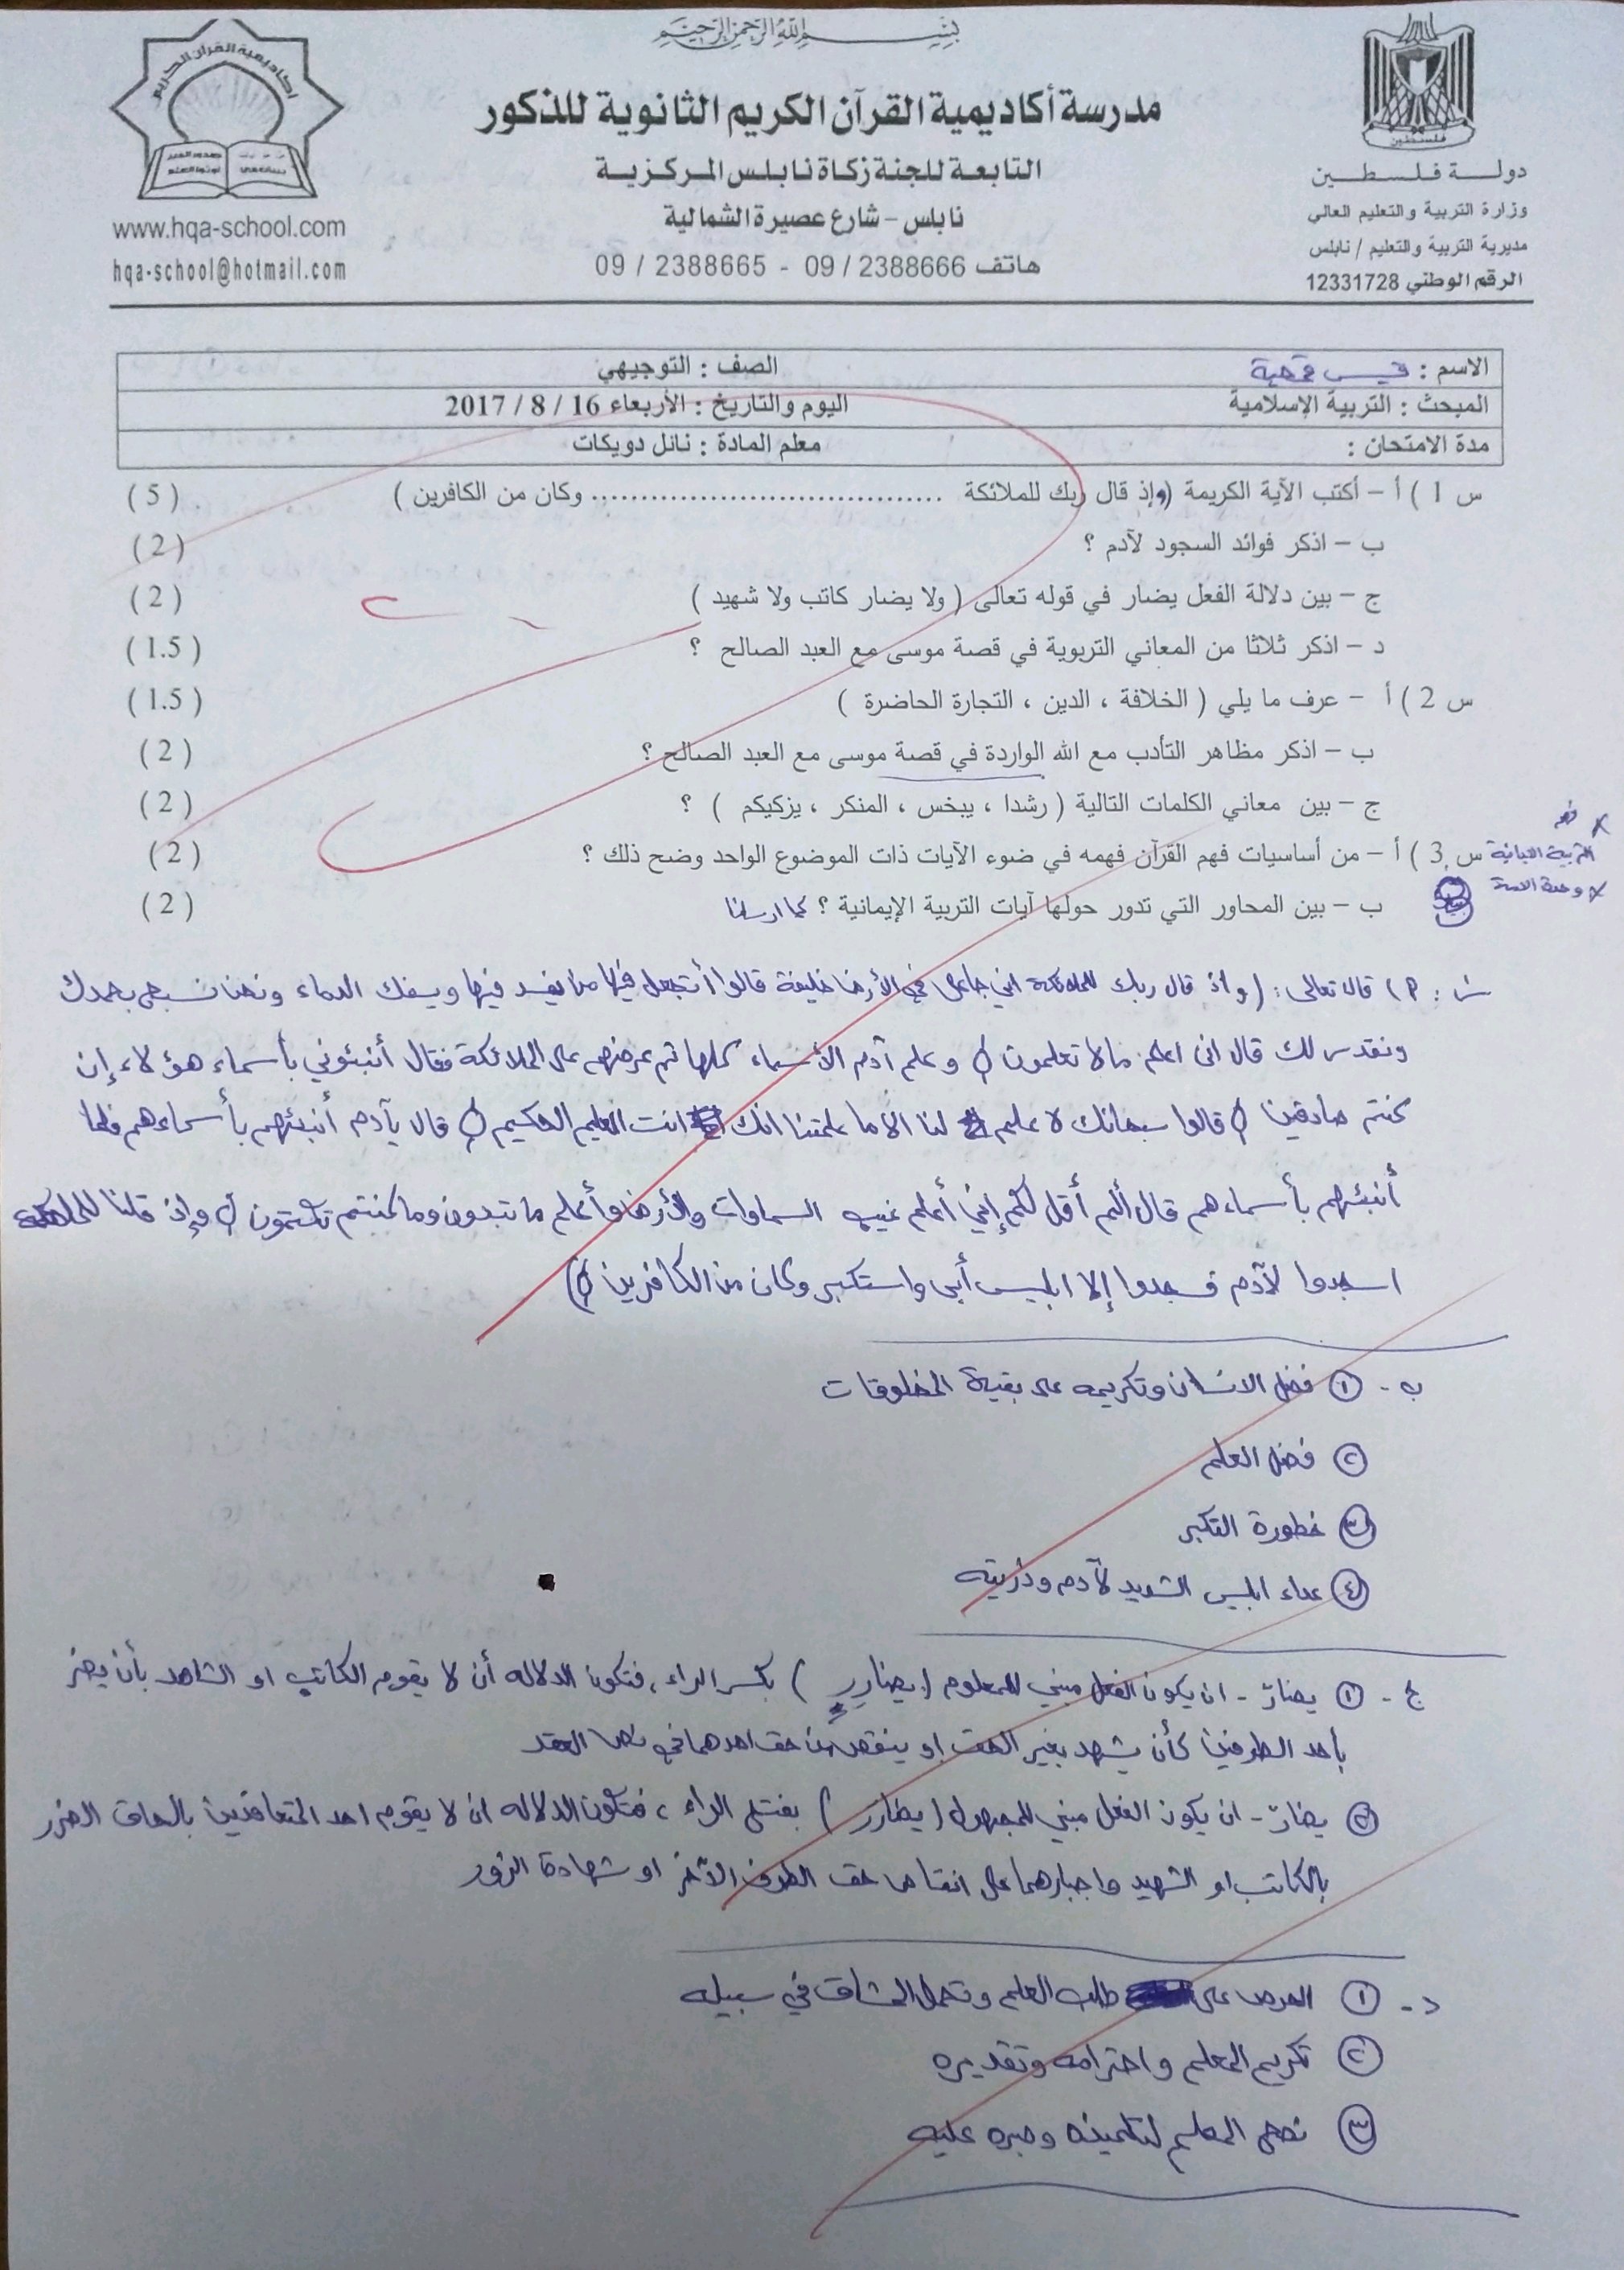 بسم الله الرحمن الرحيم
أكاديمية القرآن الكريم
www.hqa-school.com
hqa-school@hotmail.com
مدرسة أكاديمية القرآن الكريم الثانوية للذكور
التابعة للجنة زكاة نابلس المركزية
نابلس - شارع عصيرة الشمالية
هاتف 2388666 / 09 - 2388665 / 09
فلسطين
دولة فلسطين
وزارة التربية والتعليم العالي
مديرية التربية والتعليم / نابلس
الرقم الوطني 12331728
الاسم : قيس قمحية الصف : التوجيهي
المبحث : التربية الإسلامية اليوم والتاريخ : الأربعاء 16 / 8 / 2017
مدة الامتحان : معلم المادة : نائل دويكات
س 1 ) أ – أكتب الآية الكريمة ( وإذ قال ربك للملائكة .................................... وكان من الكافرين ) ( 5 )
ب – اذكر فوائد السجود لآدم ؟ ( 2 )
ج – بين دلالة الفعل يضار في قوله تعالى ( ولا يضار كاتب ولا شهيد ) ( 2 )
د – اذكر ثلاثا من المعاني التربوية في قصة موسى مع العبد الصالح ؟ ( 1.5 )
س 2 ) أ – عرف ما يلي ( الخلافة ، الدين ، التجارة الحاضرة ) ( 1.5 )
ب – اذكر مظاهر التأدب مع الله الواردة في قصة موسى مع العبد الصالح ؟ ( 2 )
ج – بين معاني الكلمات التالية ( رشدا ، يبخس ، المنكر ، يزكيكم ) ؟ ( 2 )
س 3 ) أ – من أساسيات فهم القرآن فهمه في ضوء الآيات ذات الموضوع الواحد وضح ذلك ؟ ( 2 )
ب – بين المحاور التي تدور حولها آيات التربية الإيمانية ؟ كما ارسلنا ( 2 )
وحدة الامة
س١ : أ ) قال تعالى : ( واذ قال ربك للملائكة اني جاعل في الأرض خليفة قالوا أتجعل فيها من يفسد فيها ويسفك الدماء ونحن نسبح بحمدك
ونقدس لك قال انى اعلم ما لا تعلمون () وعلم آدم الأسماء كلها ثم عرضهم على الملائكة فقال أنبئوني بأسماء هؤلاء إن
كنتم صادقين () قالوا سبحانك لا علم لنا الا ما علمتنا انك انت العليم الحكيم () قال يآدم أنبئهم بأسماءهم فلما
أنبئهم بأسماءهم قال ألم أقل لكم إني أعلم غيب السماوات والأرض وأعلم ما تبدون وما كنتم تكتمون () وإذ قلنا للملائكة
اسجدوا لآدم فسجدوا إلا ابليس أبى واستكبر وكان من الكافرين ()
ب - ① فضل الانسان وتكريمه على بقية المخلوقات
② فضل العلم
③ خطورة التكبر
④ عداء ابليس الشديد لآدم وذريته
ج - ① يضارّ - ان يكون الفعل مبني للمعلوم ( يضارِر ) بكسر الراء ، فتكون الدلاله أن لا يقوم الكاتب او الشاهد بأن يضر
بأحد الطرفين كأن يشهد بغير الحق او ينقص من حق احدهما في نص العقد
② يضارّ - ان يكون الفعل مبني للمجهول ( يضارَر ) بفتح الراء ، فتكون الدلاله ان لا يقوم احد المتعاقدين بالحاق الضرر
بالكاتب او الشهيد واجبارهما على انقاص حق الطرف الآخر او شهادة الزور
د - ① الحرص على طلب العلم وتحمل المشاق في سبيله
② تكريم المعلم واحترامه وتقديره
③ نصح المعلم لتلميذه وصبره عليه